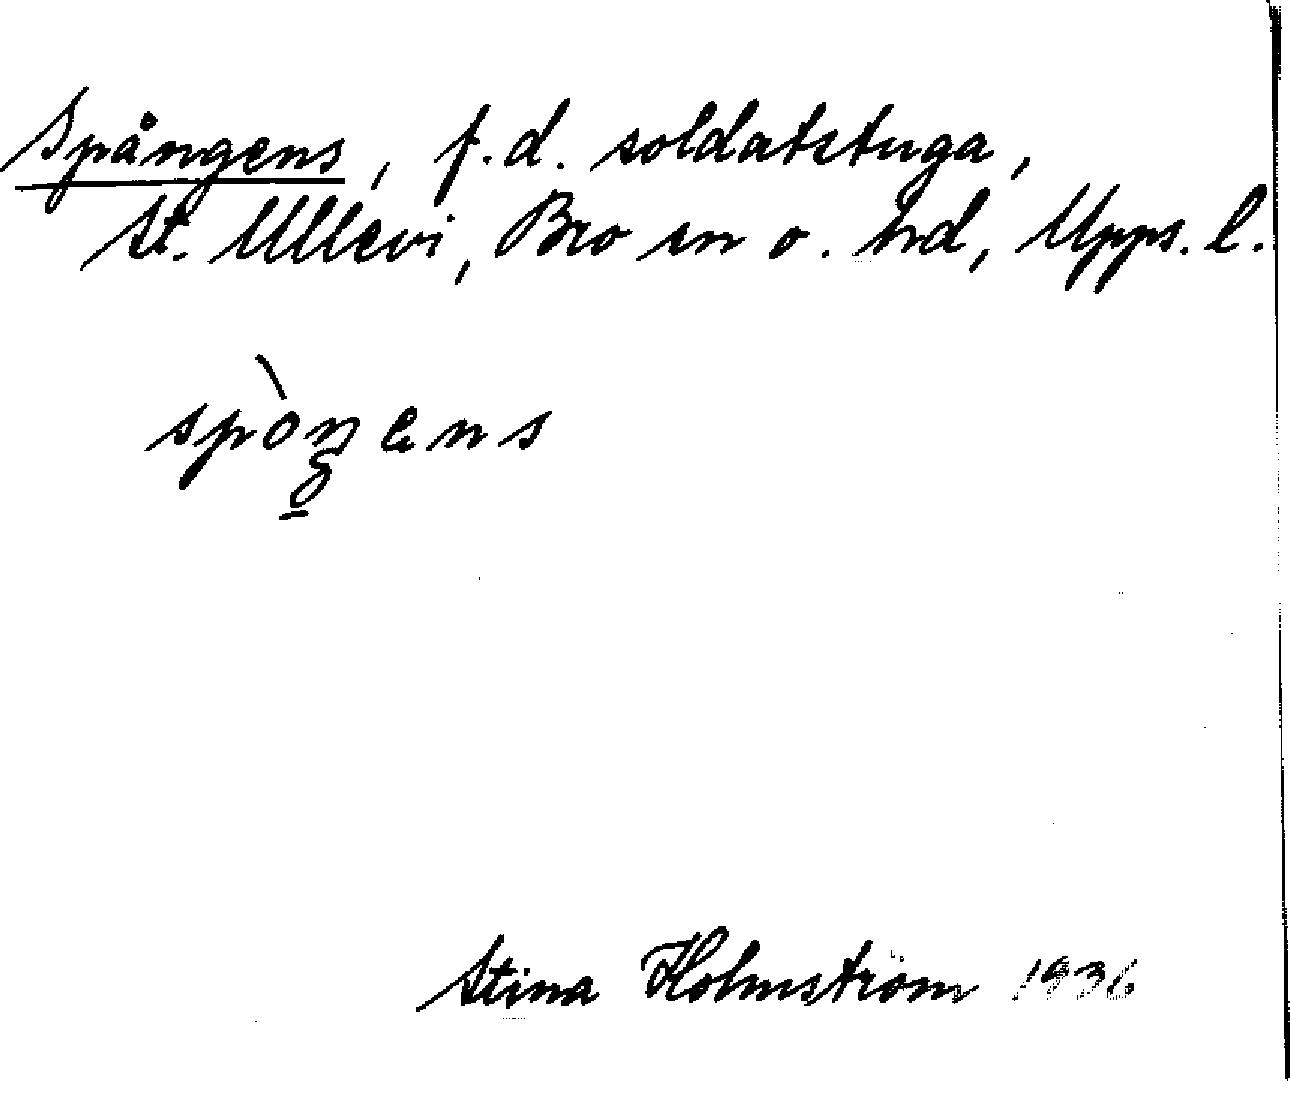 Spångens, f.d. soldatstuga,
St. Ullevi, Bro sn o. hd, Upps. l.
spòŋens
Stina Holmström 1936